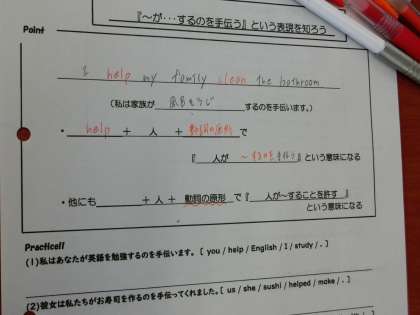 『～が・・・するのを手伝う』という表現を知ろう
Point
I help my family clean the bathroom
（私は家族が 風呂そうじ するのを手伝います。）
・ help ＋ 人 ＋ 動詞の原形 で
『 人が ～するのを手伝う 』という意味になる
・他にも ＋ 人 ＋ 動詞の原形 で『 人が～することを許す 』
という意味になる
Practice!!
(1)私はあなたが英語を勉強するのを手伝います。[ you / help / English / I / study / . ]
(2)彼女は私たちがお寿司を作るのを手伝ってくれました。[ us / she / sushi / helped / make / . ]